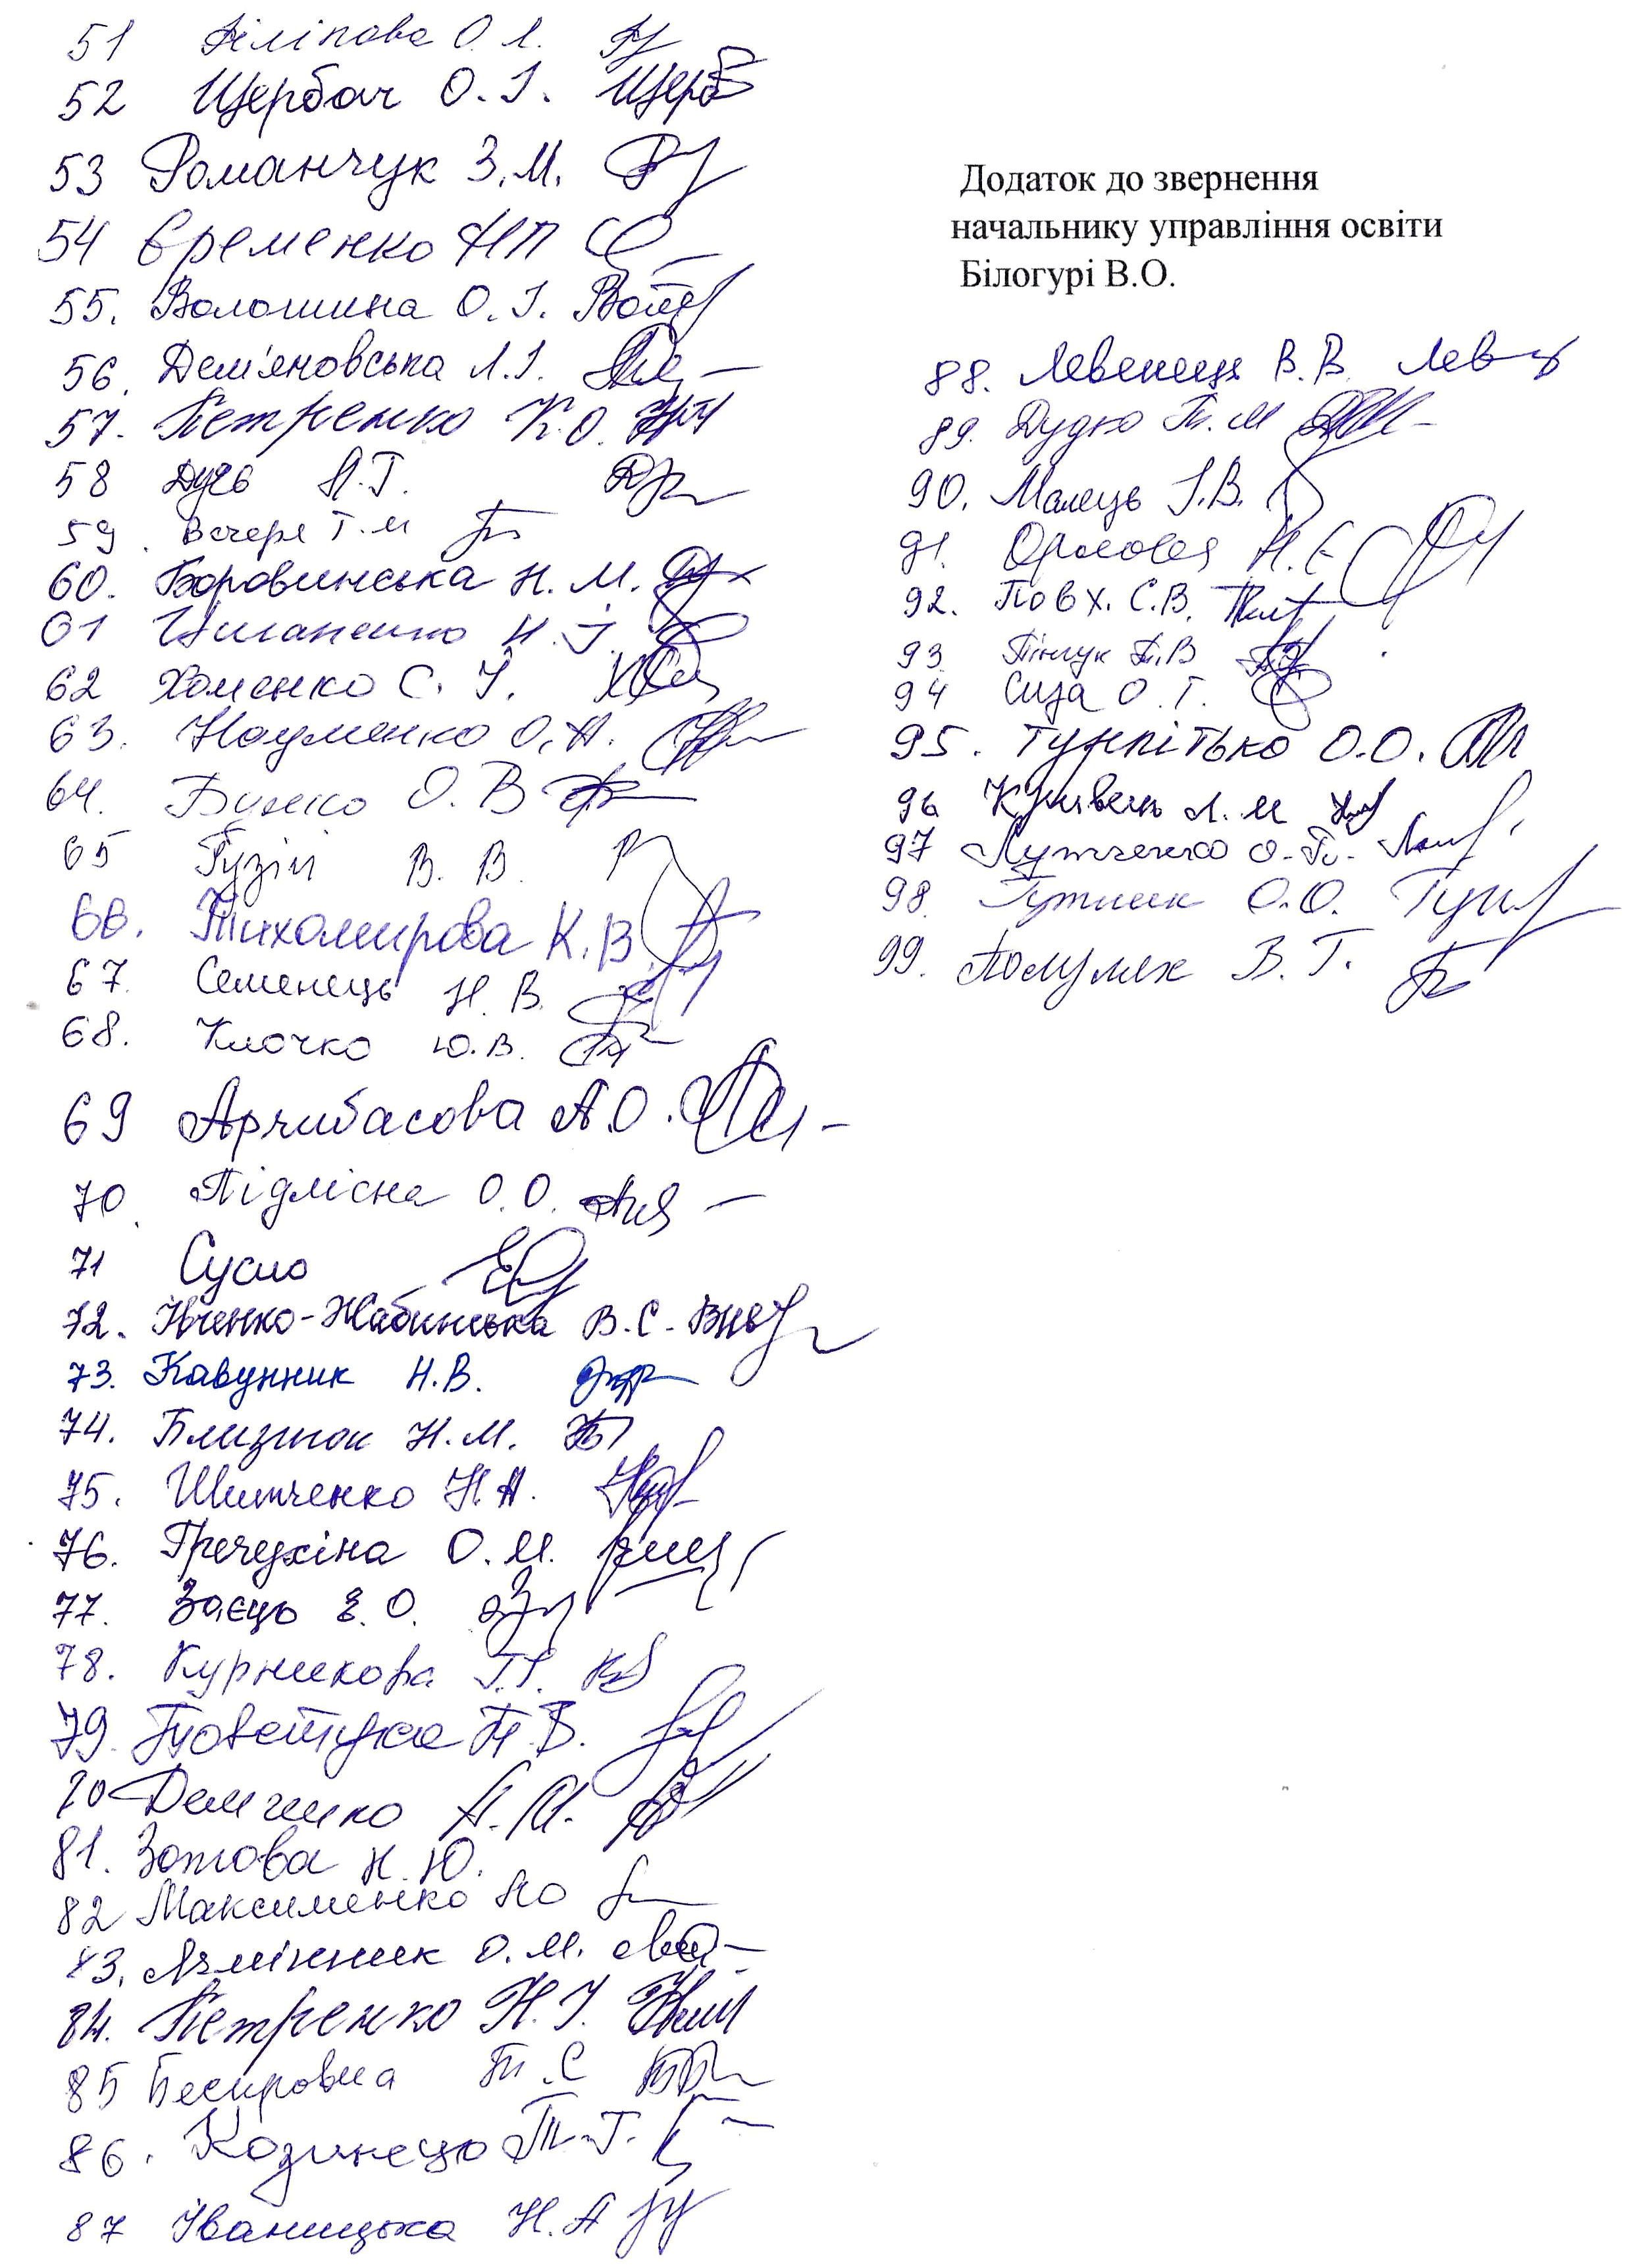 51 Філіпова О. Л.
52 Щербач О. І. Щерб
53 Романчук З. М.
54 Єременко НП
55. Волошина О. І.
56. Дем'яновська Л. І.
57. Петренко К. О.
58 Дусь Л. Г.
59. Вечеря Т. М
60. Боровинська Н. М.
61 Циганенко Н. І.
62 Хоменко С. І.
63. Науменко О. А.
64. Бушко О. В
65 Гузій В. В.
66. Тихомирова К. В.
67. Семенець Н. В.
68. Клочко Ю. В.
69 Арчибасова А. О.
70. Підлісна О. О.
71 Сусло
72. Івченко-Жабинська В. С.
73. Кавунник Н. В.
74. Близнюк Н. М.
75. Шитченко Н. А.
76. Гречухіна О. М.
77. Заєць Є. О.
78. Курникова Т. І.
79.
80 Демченко А. М.
81. Зотова Н. Ю.
82 Максименко ЛО
83. О. М.
84. Петренко Н. І.
85 Т. С
86. Козинець Т. Г.
87 Іваницька Н. А
Додаток до звернення
начальнику управління освіти
Білогурі В.О.
88. Левенець В. В.
89. Дудко Т. М
90. Малець І. В.
91. Орлова Н. Є
92. Повх. С. В.
93. Пінчук Т. В
94 Сиза О. Г.
95. О. О.
96 Л. М
97
98. О. О.
99. В. Г.